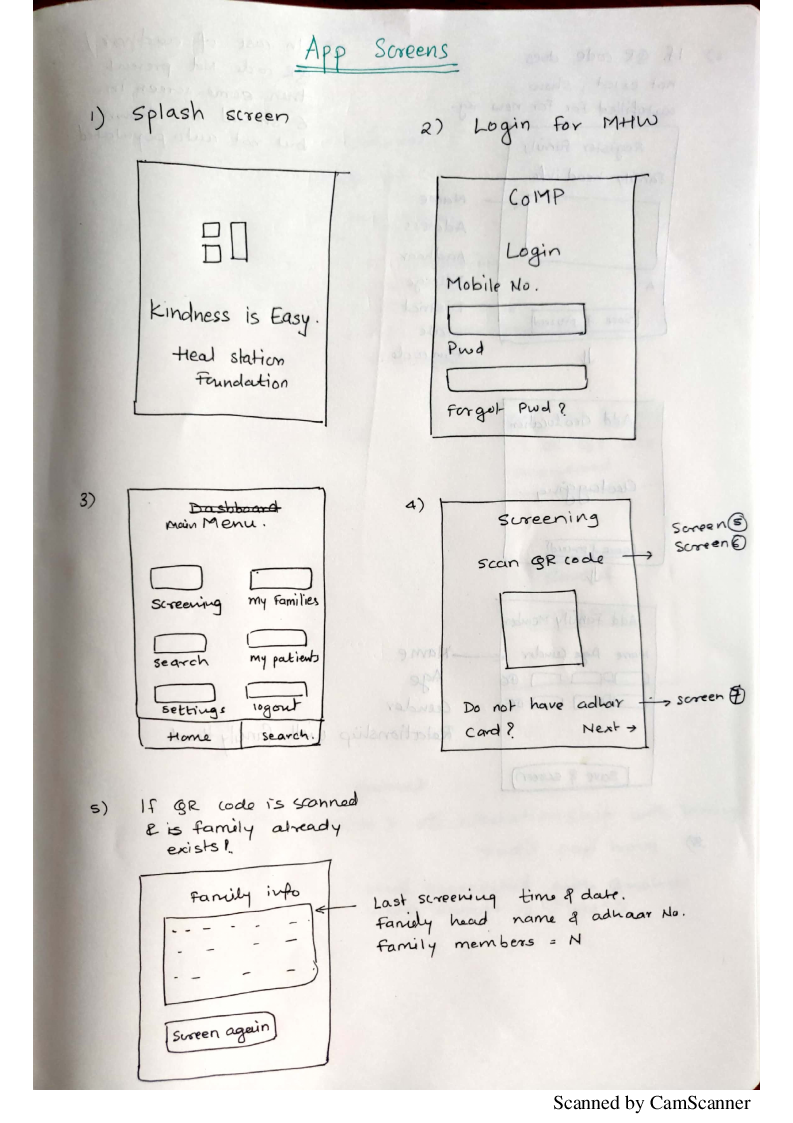 App Screens
1) Splash screen
Kindness is Easy.
Heal station
Foundation
2) Login for MHW
CoMP
Login
Mobile No.
Pwd
Forgot Pwd?
3)
Dashboard
Main Menu.
Screening
my families
search
my patients
settings
logout
Home
search.
4)
Screening
scan QR code
Screen 5
Screen 6
Do not have adhar
card?
Next →
screen 7
5) If QR code is scanned
& is family already
exists!.
Family info
Screen again
Last screening time & date.
Family head name & adhaar No.
family members = N
Scanned by CamScanner